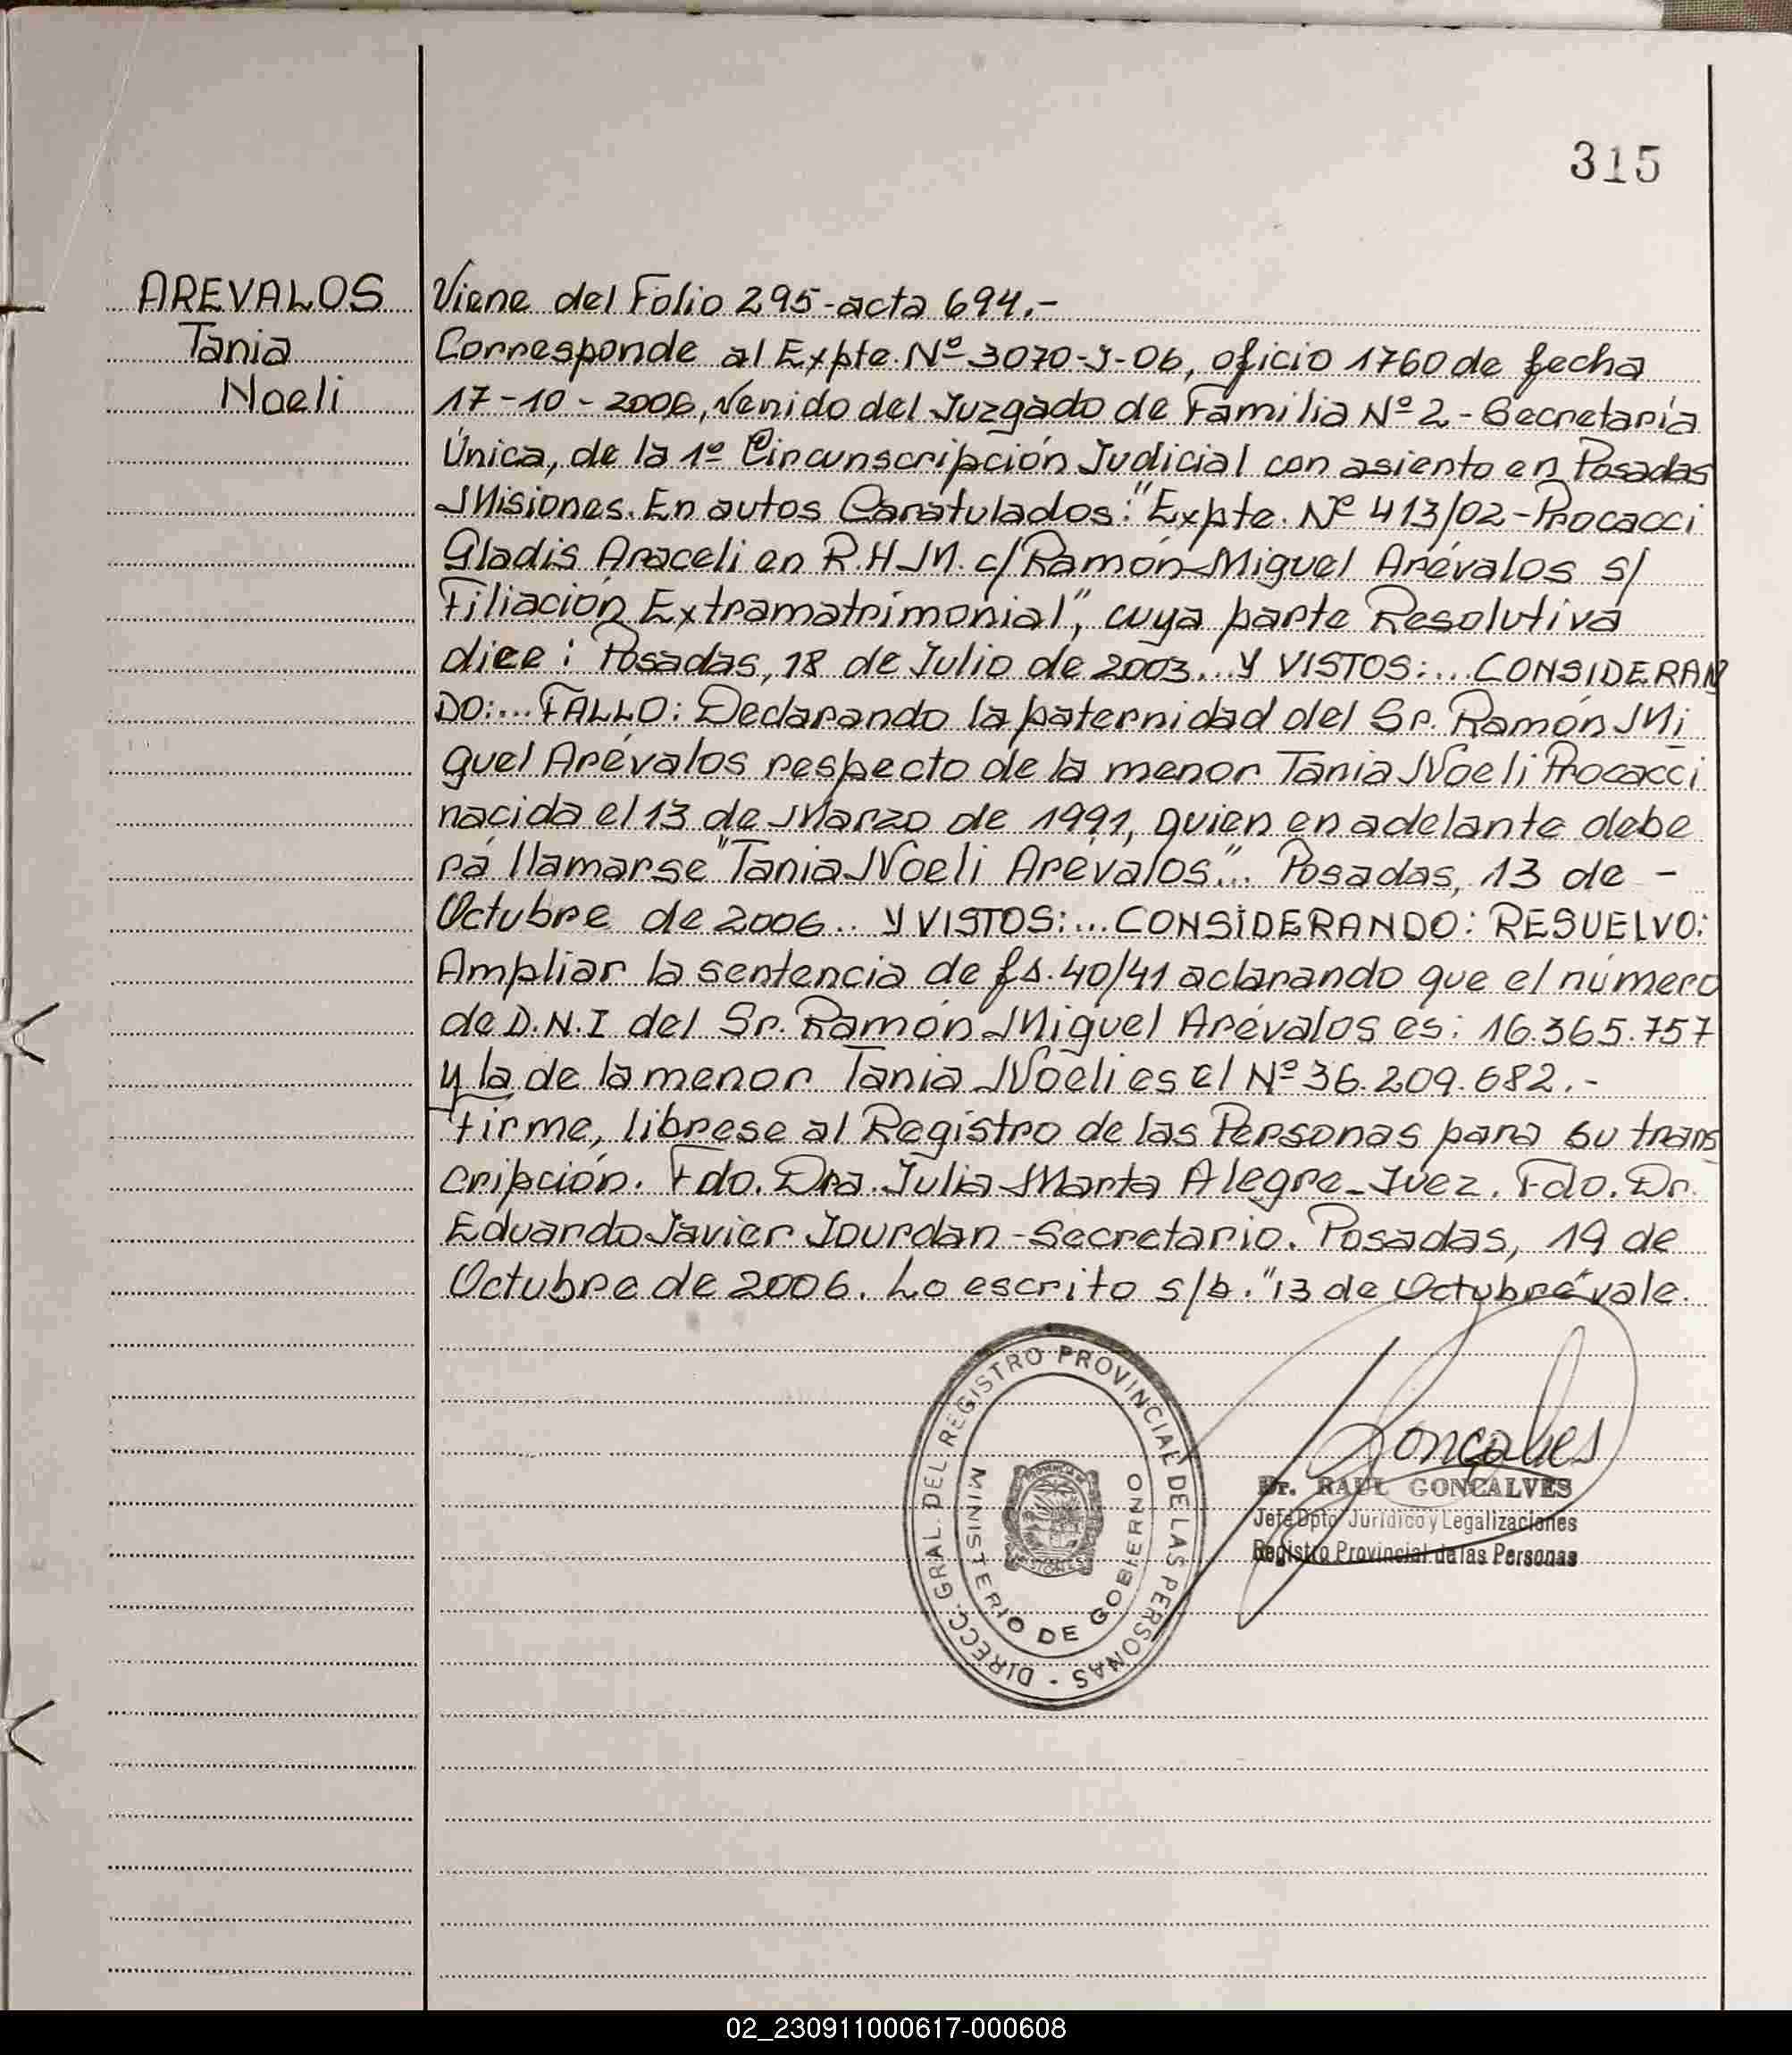 315
AREVALOS
Tania
Noeli
Viene del Folio 295-acta 694.-
Corresponde al Expte. Nº 3070-J-06, oficio 1760 de fecha
17-10-2006, Venido del Juzgado de Familia Nº 2 - Secretaría
Única, de la 1º Circunscripción Judicial con asiento en Posadas
Misiones. En autos Caratulados: "Expte. Nº 413/02-Procacci
Gladis Araceli en R.H.M. c/Ramón Miguel Arévalos s/
Filiación Extramatrimonial", cuya parte Resolutiva
dice: Posadas, 18 de Julio de 2003... Y VISTOS:... CONSIDERAN
DO:... FALLO: Declarando la paternidad del Sr. Ramón Mi
guel Arévalos respecto de la menor Tania Noeli Procacci
nacida el 13 de Marzo de 1991, quien en adelante debe
rá llamarse "Tania Noeli Arévalos"... Posadas, 13 de -
Octubre de 2006.. Y VISTOS:... CONSIDERANDO: RESUELVO:
Ampliar la sentencia de fs. 40/41 aclarando que el número
de D.N.I del Sr. Ramón Miguel Arévalos es: 16.365.757
y la de la menor Tania Noeli es el Nº 36.209.682.-
Firme, librese al Registro de las Personas para su trans
cripción. Fdo. Dra. Julia Marta Alegre - Juez. Fdo. Dr.
Eduardo Javier Jourdan - Secretario. Posadas, 19 de
Octubre de 2006. Lo escrito s/b. "13 de Octubre" vale.
DIRECC. GRAL. DEL REGISTRO PROVINCIAL DE LAS PERSONAS -
MINISTERIO DE GOBIERNO
PROVINCIA DE
MISIONES
Gonçalves
Dr. RAUL GONCALVES
Jefe Dpto. Jurídico y Legalizaciones
Registro Provincial de las Personas
02_230911000617-000608